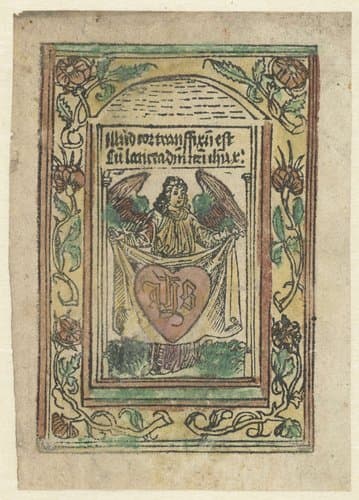 Illud cor transfixū est
Cū lancea dni nri ihu x:
ihs